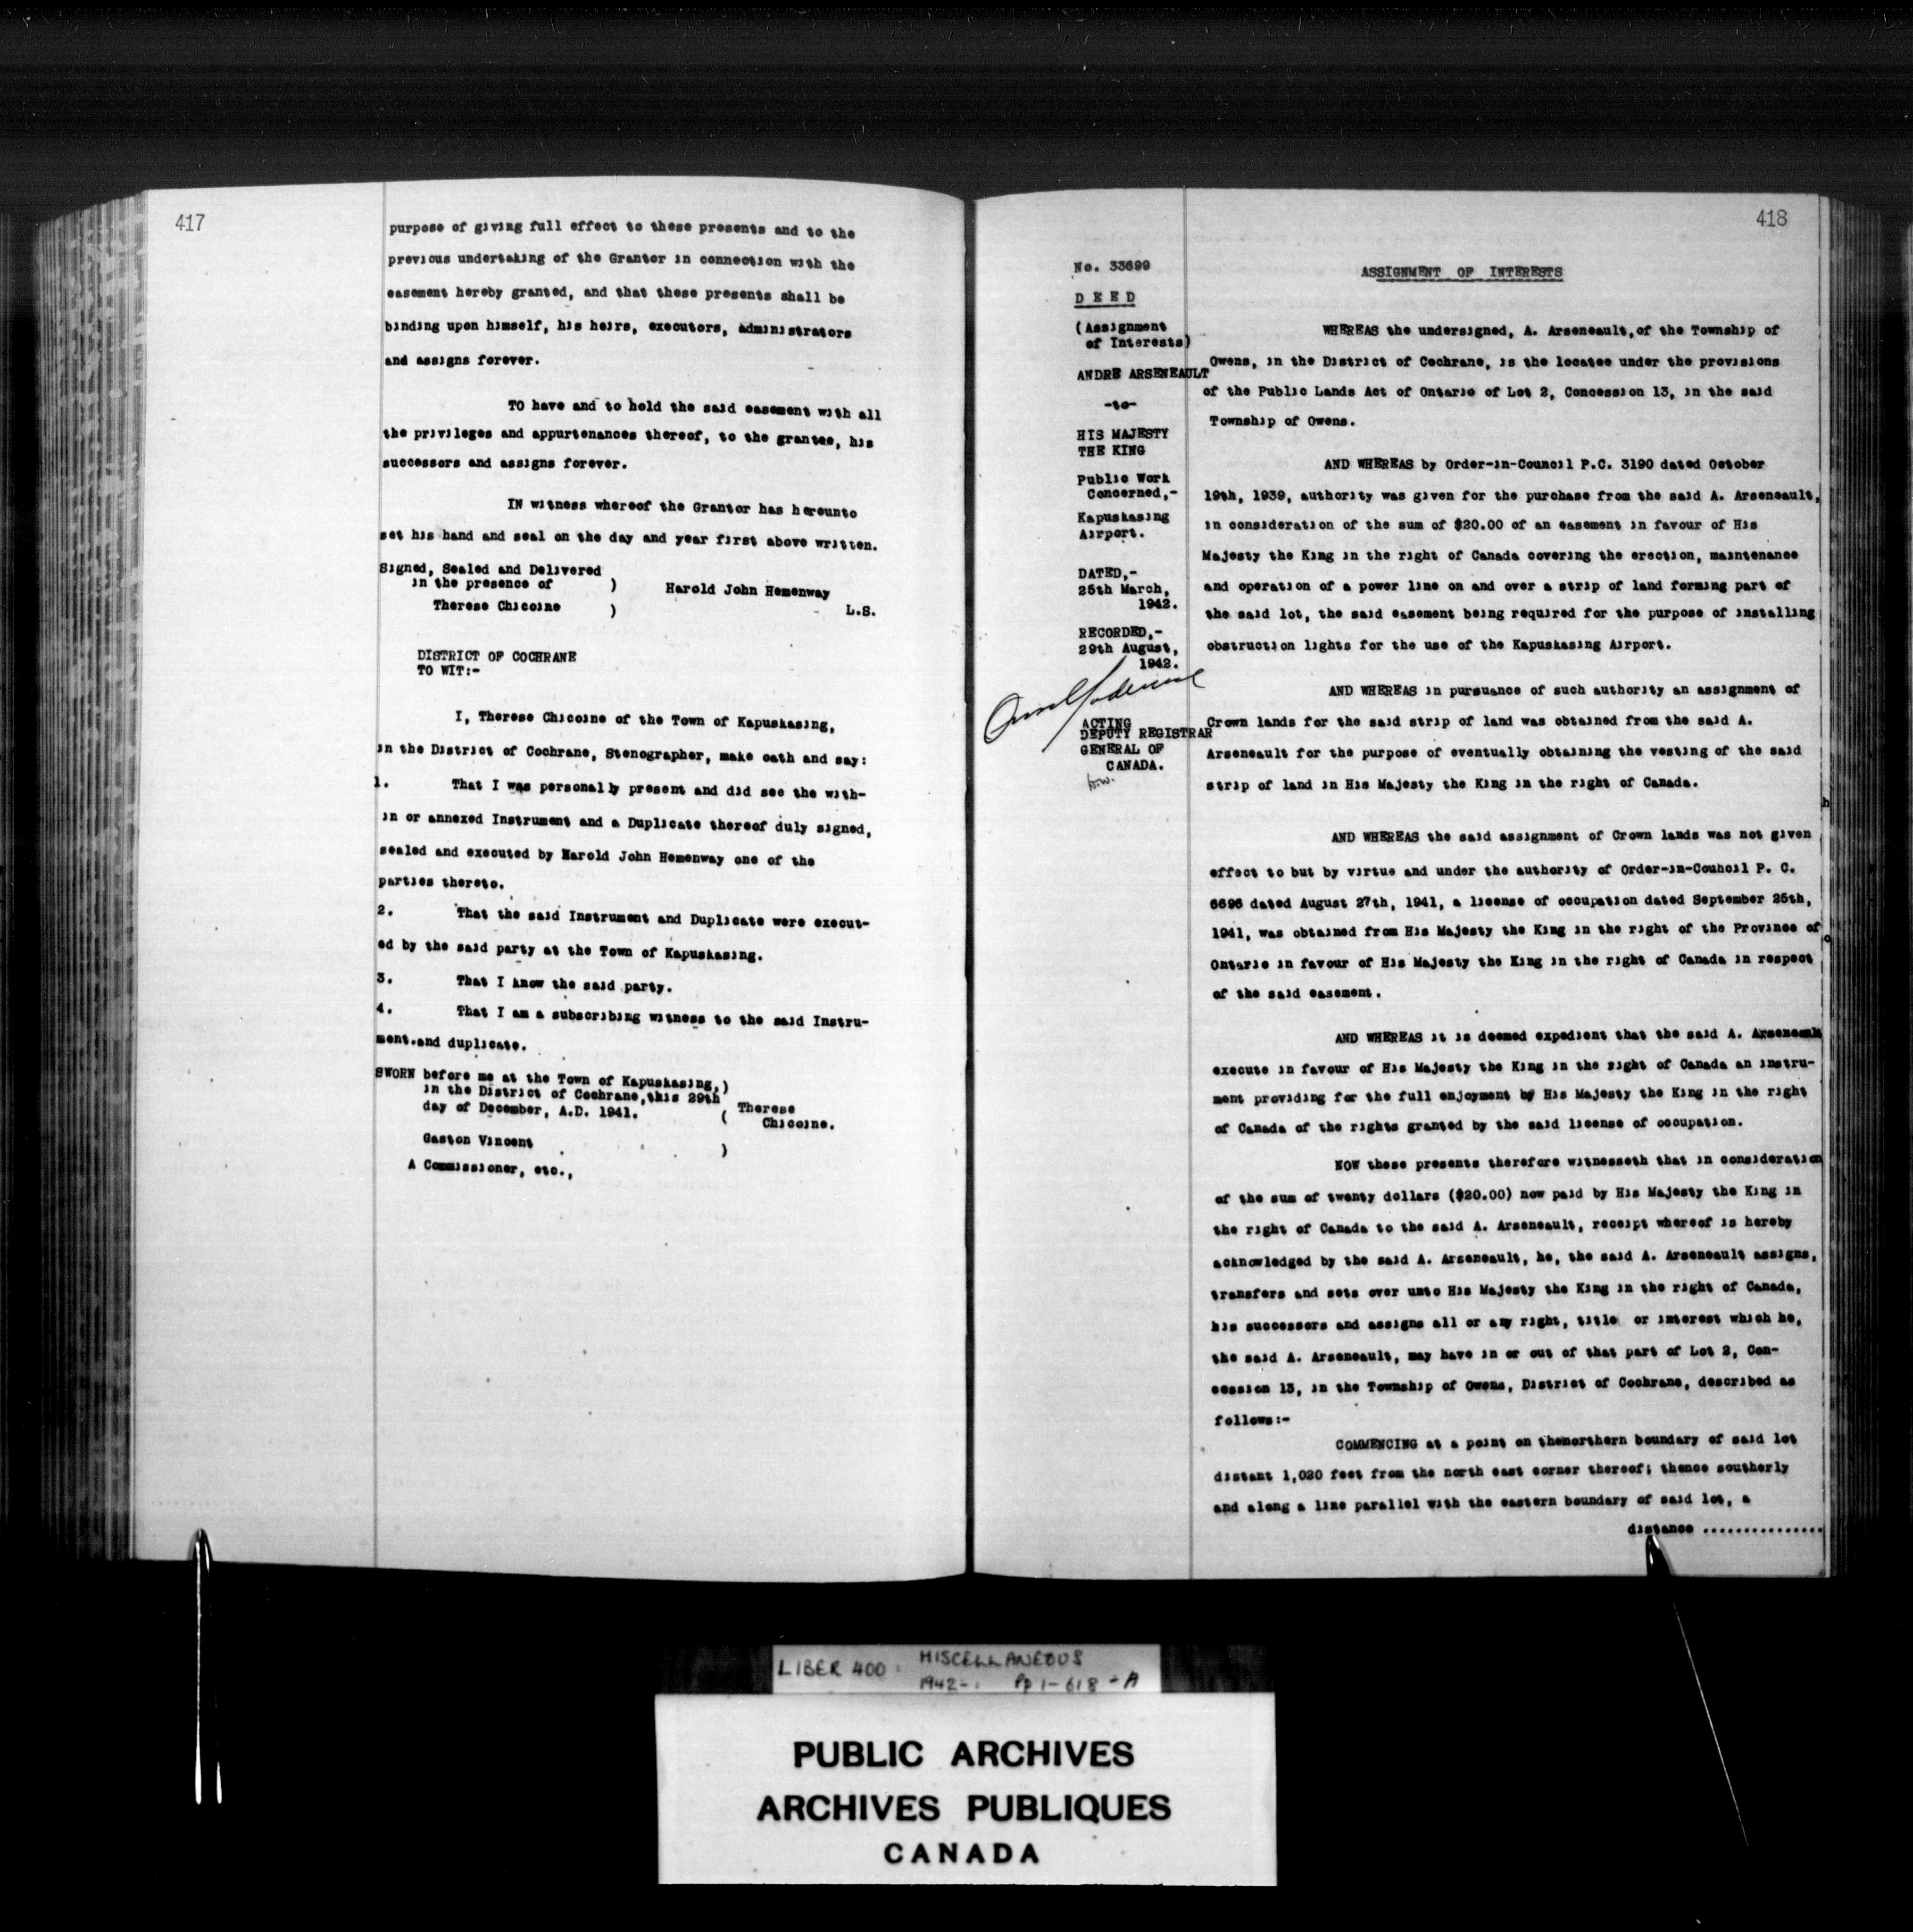 417
purpose of giving full effect to these presents and to the
previous undertaking of the Grantor in connection with the
easement hereby granted, and that these presents shall be
binding upon himself, his heirs, executors, administrators
and assigns forever.
TO have and to hold the said easement with all
the privileges and appurtenances thereof, to the grantee, his
successors and assigns forever.
IN witness whereof the Grantor has hereunto
set his hand and seal on the day and year first above written.
Signed, Sealed and Delivered
in the presence of )
Harold John Hemenway
Therese Chicoine )
L.S.
DISTRICT OF COCHRANE
TO WIT:-
I, Therese Chicoine of the Town of Kapuskasing,
in the District of Cochrane, Stenographer, make oath and say:
1. That I was personally present and did see the with-
in or annexed Instrument and a Duplicate thereof duly signed,
sealed and executed by Harold John Hemenway one of the
parties thereto.
2. That the said Instrument and Duplicate were execut-
ed by the said party at the Town of Kapuskasing.
3. That I know the said party.
4. That I am a subscribing witness to the said Instru-
ment.and duplicate.
SWORN before me at the Town of Kapuskasing,)
in the District of Cochrane,this 29th
day of December, A.D. 1941. ( Therese
Chicoine.
Gaston Vincent )
A Commissioner, etc.,
418
No. 33699
D E E D
(Assignment
of Interests)
ANDRE ARSENEAULT
-to-
HIS MAJESTY
THE KING
Public Work
Concerned,-
Kapuskasing
Airport.
DATED,-
25th March,
1942.
RECORDED,-
29th August,
1942.
ACTING
DEPUTY REGISTRAR
GENERAL OF
CANADA.
ASSIGNMENT OF INTERESTS
WHEREAS the undersigned, A. Arseneault,of the Township of
Owens, in the District of Cochrane, is the locatee under the provisions
of the Public Lands Act of Ontario of Lot 2, Concession 13, in the said
Township of Owens.
AND WHEREAS by Order-in-Council P.C. 3190 dated October
19th, 1939, authority was given for the purchase from the said A. Arseneault,
in consideration of the sum of $20.00 of an easement in favour of His
Majesty the King in the right of Canada covering the erection, maintenance
and operation of a power line on and over a strip of land forming part of
the said lot, the said easement being required for the purpose of installing
obstruction lights for the use of the Kapuskasing Airport.
AND WHEREAS in pursuance of such authority an assignment of
Crown lands for the said strip of land was obtained from the said A.
Arseneault for the purpose of eventually obtaining the vesting of the said
strip of land in His Majesty the King in the right of Canada.
AND WHEREAS the said assignment of Crown lands was not given
effect to but by virtue and under the authority of Order-in-Council P. C.
6696 dated August 27th, 1941, a license of occupation dated September 25th,
1941, was obtained from His Majesty the King in the right of the Province of
Ontario in favour of His Majesty the King in the right of Canada in respect
of the said easement.
AND WHEREAS it is deemed expedient that the said A. Arseneault
execute in favour of His Majesty the King in the right of Canada an instru-
ment providing for the full enjoyment by His Majesty the King in the right
of Canada of the rights granted by the said license of occupation.
NOW these presents therefore witnesseth that in consideration
of the sum of twenty dollars ($20.00) now paid by His Majesty the King in
the right of Canada to the said A. Arseneault, receipt whereof is hereby
acknowledged by the said A. Arseneault, he, the said A. Arseneault assigns,
transfers and sets over unto His Majesty the King in the right of Canada,
his successors and assigns all or any right, title or interest which he,
the said A. Arseneault, may have in or out of that part of Lot 2, Con-
cession 13, in the Township of Owens, District of Cochrane, described as
follows:-
COMMENCING at a point on thenorthern boundary of said lot
distant 1,020 feet from the north east corner thereof; thence southerly
and along a line parallel with the eastern boundary of said lot, a
distance ...............
LIBER 400: MISCELLANEOUS
1942-: Pp 1-618-A
PUBLIC ARCHIVES
ARCHIVES PUBLIQUES
CANADA